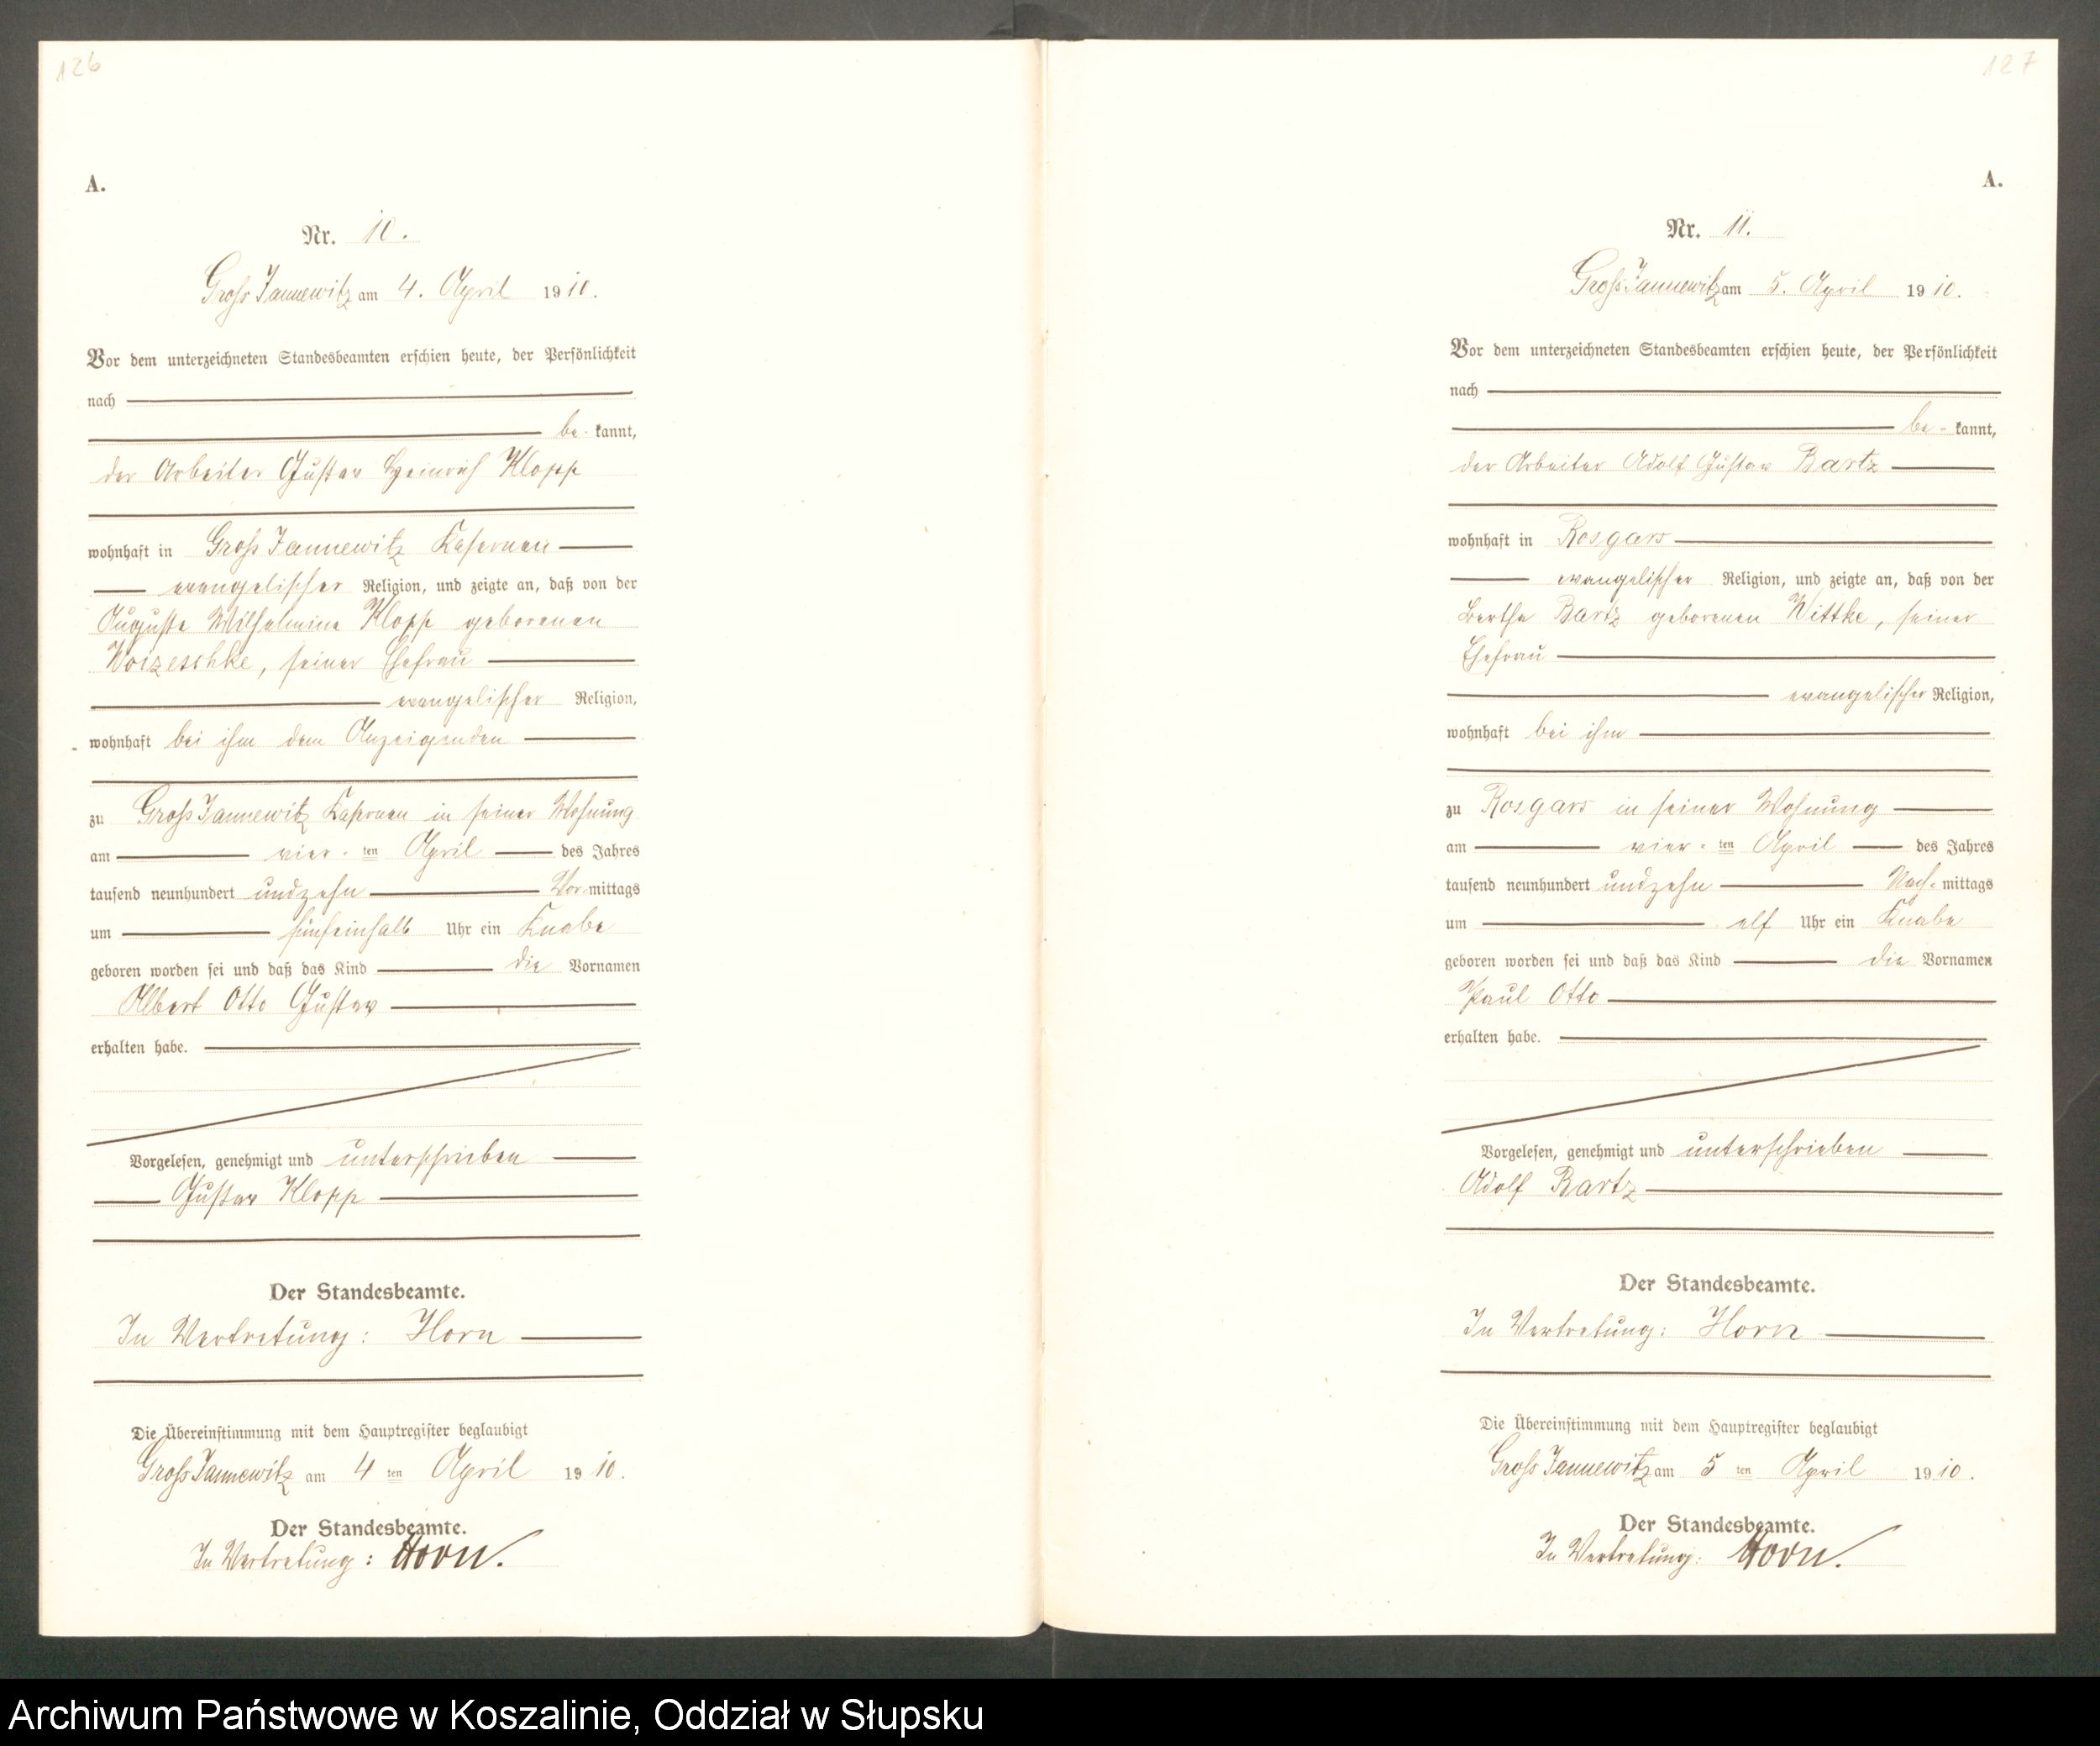 126
A.
Nr. 10.
Gross Jannewitz am 4. April 1910.
Vor dem unterzeichneten Standesbeamten erschien heute, der Persönlichkeit
nach
be- kannt,
der Arbeiter Gustav Heinrich Klopp
wohnhaft in Gross Jannewitz Kasernen
evangelischer Religion, und zeigte an, daß von der
Auguste Wilhelmine Klopp geborenen
Woizeschke, seiner Ehefrau
evangelischer Religion,
wohnhaft bei ihm dem Anzeigenden
zu Gross Jannewitz Kasernen in seiner Wohnung
am vier- ten April des Jahres
tausend neunhundert undzehn Vor-mittags
um fünfeinhalb Uhr ein Knabe
geboren worden sei und daß das Kind die Vornamen
Albert Otto Gustav
erhalten habe.
Vorgelesen, genehmigt und unterschrieben
Gustav Klopp
Der Standesbeamte.
In Vertretung: Horn
Die Übereinstimmung mit dem Hauptregister beglaubigt
Gross Jannewitz am 4 ten April 1910.
Der Standesbeamte.
In Vertretung: Horn.
127
A.
Nr. 11.
Gross Jannewitz am 5. April 1910.
Vor dem unterzeichneten Standesbeamten erschien heute, der Persönlichkeit
nach
be- kannt,
der Arbeiter Adolf Gustav Bartz
wohnhaft in Rosgars
evangelischer Religion, und zeigte an, daß von der
Bertha Bartz geborenen Wittke, seiner
Ehefrau
evangelischer Religion,
wohnhaft bei ihm
zu Rosgars in seiner Wohnung
am vier- ten April des Jahres
tausend neunhundert undzehn Nach- mittags
um elf Uhr ein Knabe
geboren worden sei und daß das Kind die Vornamen
Paul Otto
erhalten habe.
Vorgelesen, genehmigt und unterschrieben
Adolf Bartz
Der Standesbeamte.
In Vertretung: Horn
Die Übereinstimmung mit dem Hauptregister beglaubigt
Gross Jannewitz am 5 ten April 1910.
Der Standesbeamte.
In Vertretung: Horn.
Archiwum Państwowe w Koszalinie, Oddział w Słupsku